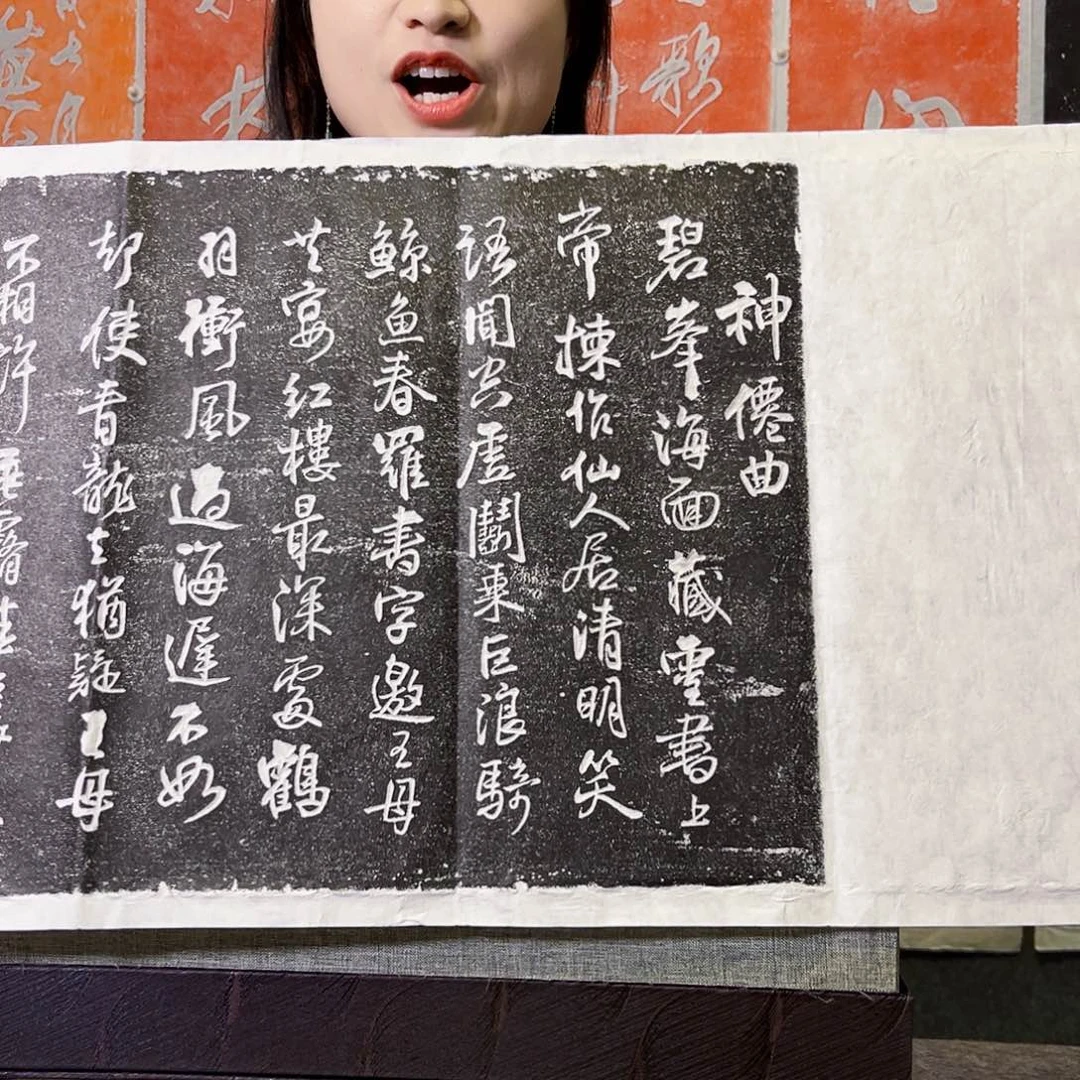 神僊曲
碧峯海面藏靈書上
帝揀作仙人居清明笑
語聞空虛鬭乘巨浪騎
鯨魚春羅書字邀王母
共宴紅樓最深處鶴
羽衝風過海遲不如
却使青龍去猶疑王母
不相許垂
歌